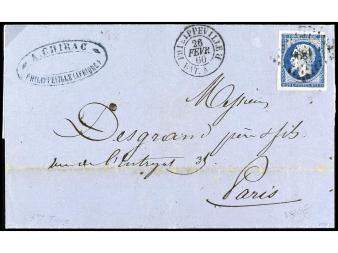 A. CHIRAC
PHILIPPEVILLE (AFRIQUE)
PHILIPPEVILLE
26
FEVR
60
BAT. A
Messieurs
Desgrand père & fils
rue de l'entrepot 31
Paris